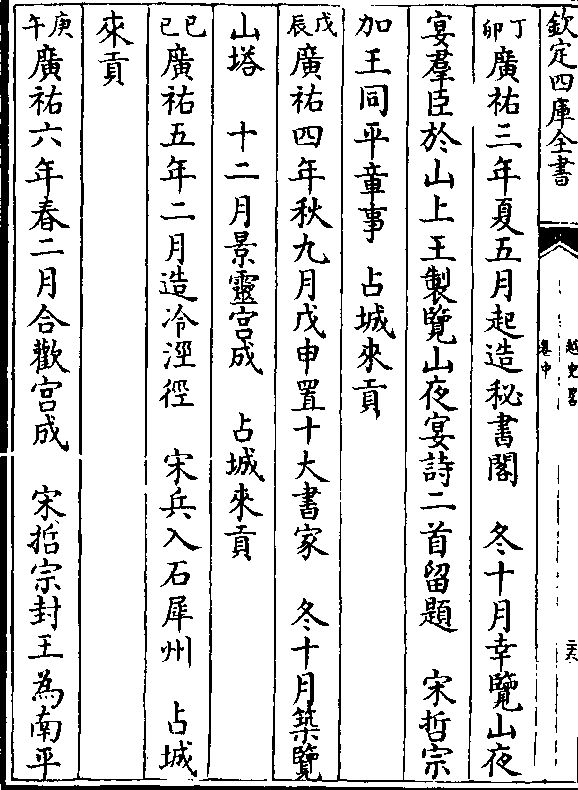 欽定四庫全書
越史畧
卷中
丁卯廣祐三年夏五月起造秘書閣　冬十月幸覽山夜
宴羣臣於山上王製覽山夜宴詩二首留題　宋哲宗
加王同平章事　占城來貢
戊辰廣祐四年秋九月戊申置十大書家　冬十月築覽
山塔　十二月景靈宮成　占城來貢
己巳廣祐五年二月造冷涇徑　宋兵入石犀州　占城
來貢
庚午廣祐六年春二月合歡宮成　宋哲宗封王為南平